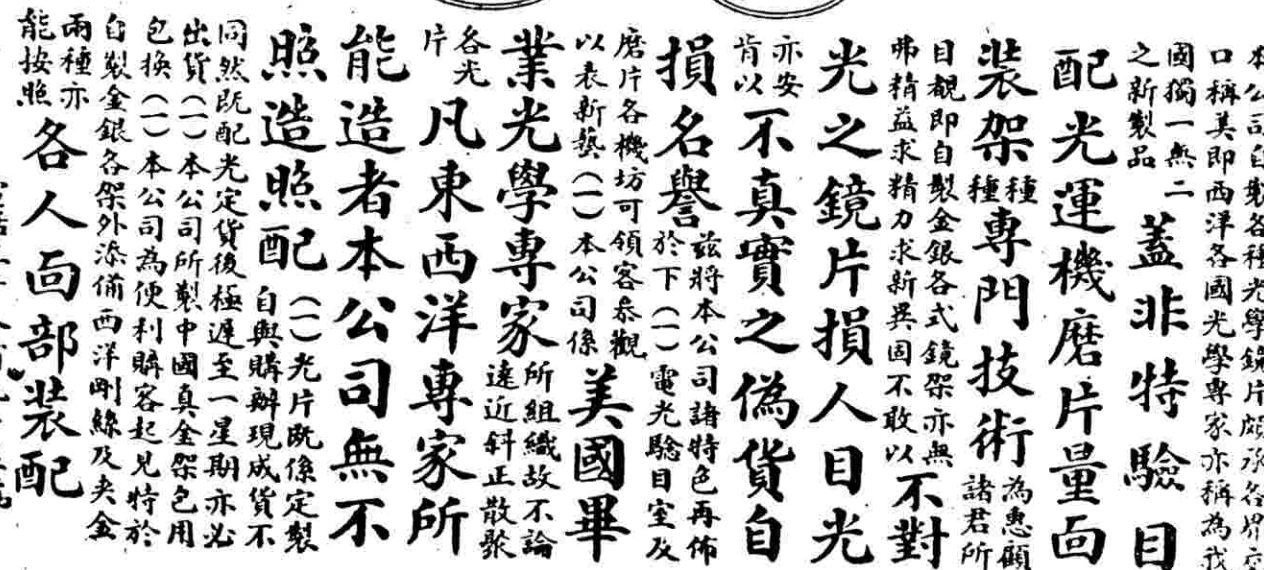 本公司自製各種光學鏡片頗承各界交
口稱美即西洋各國光學專家亦稱為我
國獨一無二
之新製品
蓋非特驗目
配光運機磨片量面
裝架
種
種
專門技術
為惠顧
諸君所
目覩即自製金銀各式鏡架亦無
弗精益求精力求新異固不敢以
不對
光之鏡片損人目光
亦安
肯以
不真實之偽貨自
損名譽
茲將本公司諸特色再佈
於下(一)電光驗目室及
磨片各機坊可領客叅觀
以表新藝(一)本公司係
美國畢
業光學專家
所組織故不論
遠近斜正散聚
各光
片
凡東西洋專家所
能造者本公司無不
照造照配
(一)光片既係定製
自與購辦現成貨不
同然既配光定貨後極遲至一星期亦必
出貨(一)本公司所製中國真金架包用
包換(一)本公司為便利購客起見特於
自製金銀各架外添備西洋剛絲及夾金
兩種亦
能按照
各人面部裝配